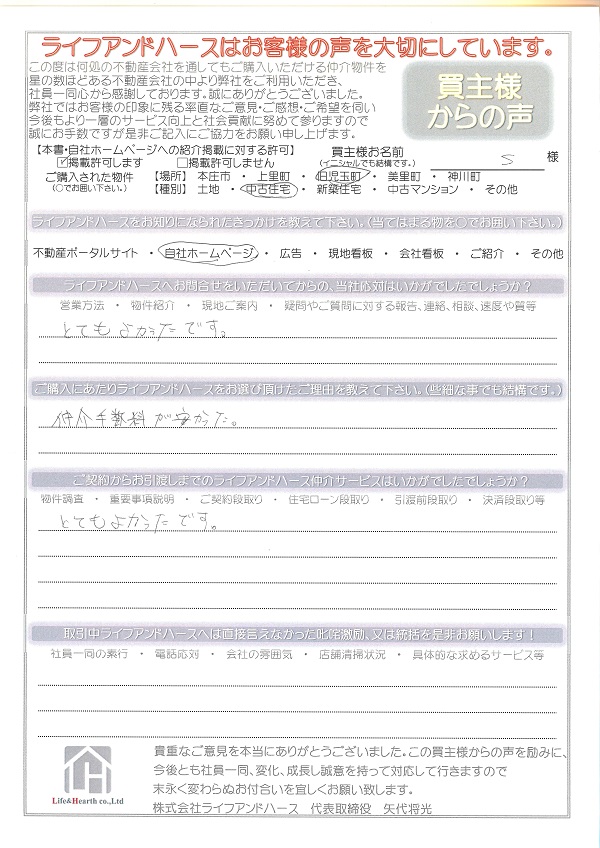 ライフアンドハースはお客様の声を大切にしています。
この度は何処の不動産会社を通してもご購入いただける仲介物件を
星の数ほどある不動産会社の中より弊社をご利用いただき、
社員一同心から感謝しております。誠にありがとうございました。
弊社ではお客様の印象に残る率直なご意見・ご感想・ご希望を伺い
今後もより一層のサービス向上と社会貢献に努めて参りますので
誠にお手数ですが是非ご記入にご協力をお願い申し上げます。
買主様
からの声
【本書・自社ホームページへの紹介掲載に対する許可】
☑掲載許可します □掲載許可しません
買主様お名前
(イニシャルでも結構です。)
S 様
ご購入された物件
(○でお囲い下さい。)
【場所】 本庄市 ・ 上里町 ・ 旧児玉町 ・ 美里町 ・ 神川町
【種別】 土地 ・ 中古住宅 ・ 新築住宅 ・ 中古マンション ・ その他
ライフアンドハースをお知りになられたきっかけを教えて下さい。(当てはまる物を○でお囲い下さい。)
不動産ポータルサイト ・ 自社ホームページ ・ 広告 ・ 現地看板 ・ 会社看板 ・ ご紹介 ・ その他
ライフアンドハースへお問合せをいただいてからの、当社応対はいかがでしたでしょうか?
営業方法 ・ 物件紹介 ・ 現地ご案内 ・ 疑問やご質問に対する報告、連絡、相談、速度や質等
とてもよかったです。
ご購入にあたりライフアンドハースをお選び頂けたご理由を教えて下さい。(些細な事でも結構です。)
仲介手数料が安かった。
ご契約からお引渡しまでのライフアンドハース仲介サービスはいかがでしたでしょうか?
物件調査 ・ 重要事項説明 ・ ご契約段取り ・ 住宅ローン段取り ・ 引渡前段取り ・ 決済段取り等
とてもよかったです。
取引中ライフアンドハースへは直接言えなかった叱咤激励、又は統括を是非お願いします!
社員一同の素行 ・ 電話応対 ・ 会社の雰囲気 ・ 店舗清掃状況 ・ 具体的な求めるサービス等
貴重なご意見を本当にありがとうございました。この買主様からの声を励みに、
今後とも社員一同、変化、成長し誠意を持って対応して行きますので
末永く変わらぬお付合いを宜しくお願い致します。
株式会社ライフアンドハース 代表取締役 矢代将光
Life&Hearth co.,Ltd